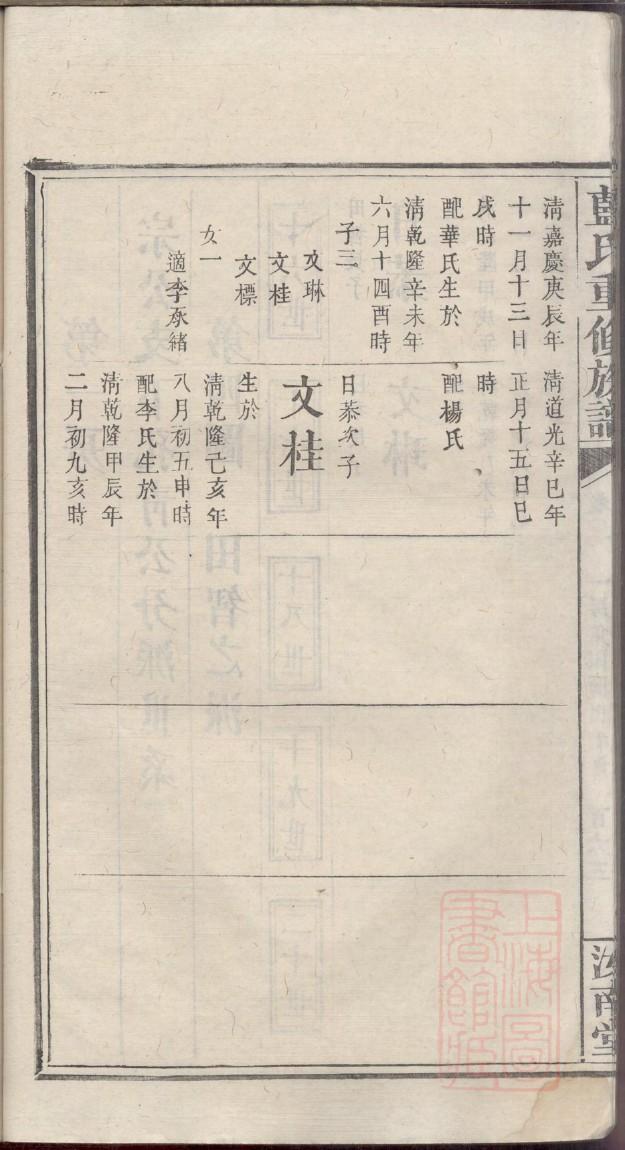 藍氏重修族譜
汝南堂
清嘉慶庚辰年
十一月十三日
戌時
配華氏生於
清乾隆辛未年
六月十四酉時
子三
文琳
文桂
文標
女一
適李承緒
清道光辛巳年
正月十五日巳
時
配楊氏
日恭次子
文桂
生於
清乾隆己亥年
八月初五申時
配李氏生於
清乾隆甲辰年
二月初九亥時
上海圖
書館藏